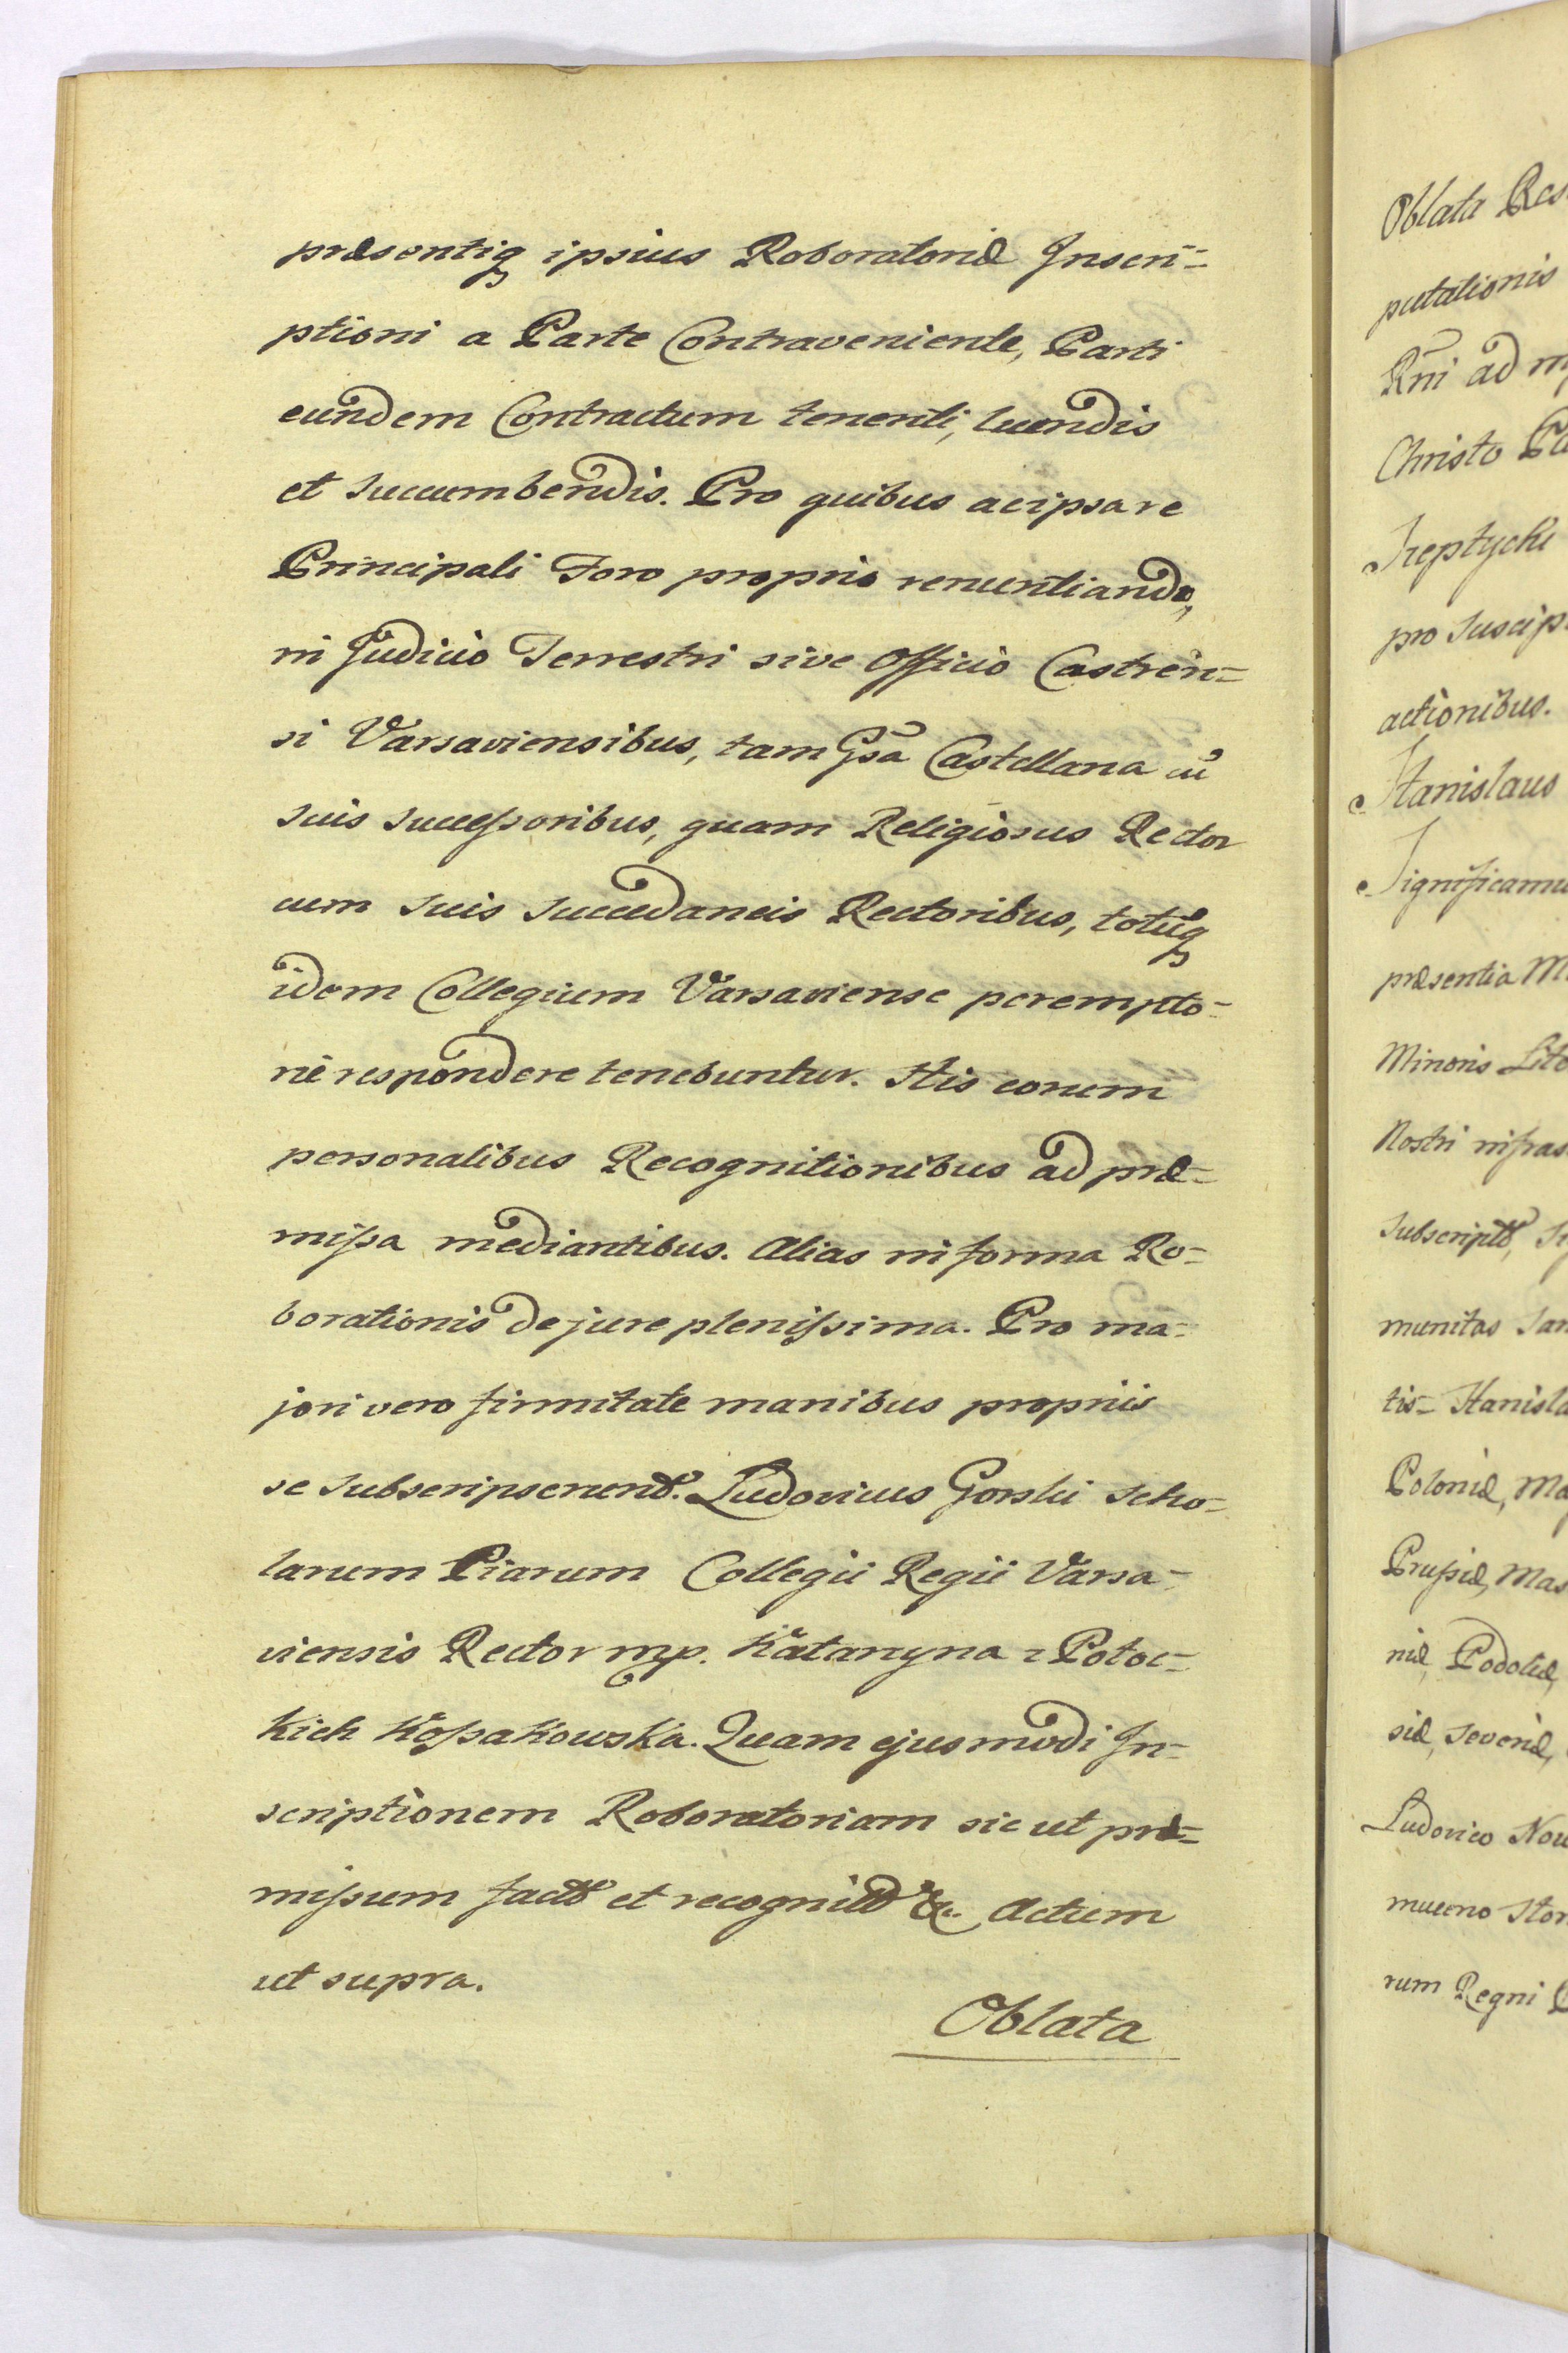 præsentiq ipsius Roboratoriæ Inscri=
ptioni a Parte Contraveniente, Parti
eundem Contractum tenenti, luendis
et succumbendis. Pro quibus ac ipsa re
Principali Foro proprio renuntiando,
in Judicio Terrestri sive Officio Castren=
si Varsaviensibus, tam Gsa Castellana cū
suis successoribus, quam Religiosus Rector
cum suis succedaneis Rectoribus, totūq
idem Collegium Varsaviense perempto=
riè respondere tenebuntur. His eorum
personalibus Recognitionibus ad præ=
missa mediantibus. Alias in forma Ro=
borationis de jure plenissima. Pro ma=
jori vero firmitate manibus propriis
se subscripserunt. Ludovicus Gorski Scho=
larum Piarum Collegii Regii Varsa=
viensis Rector mp. Katarzyna z Potoc=
kich Kossakowska. Quam ejusmodi In=
scriptionem Roboratoriam sic ut præ=
missum fact et recognit &c. Actum
ut supra.
Oblata
Oblata Res
putationis
Rni ad
Christo
Szeptycki
pro suscip
actionibus.
Stanislaus
Significamus
præsentia
Minoris
Nostri infras
subscript,
munitas
tis= Stanisla
Poloniæ, Ma
Prussiæ, Mas
niæ, Podoliæ,
siæ, Severiæ,
Ludovico
rum Regni